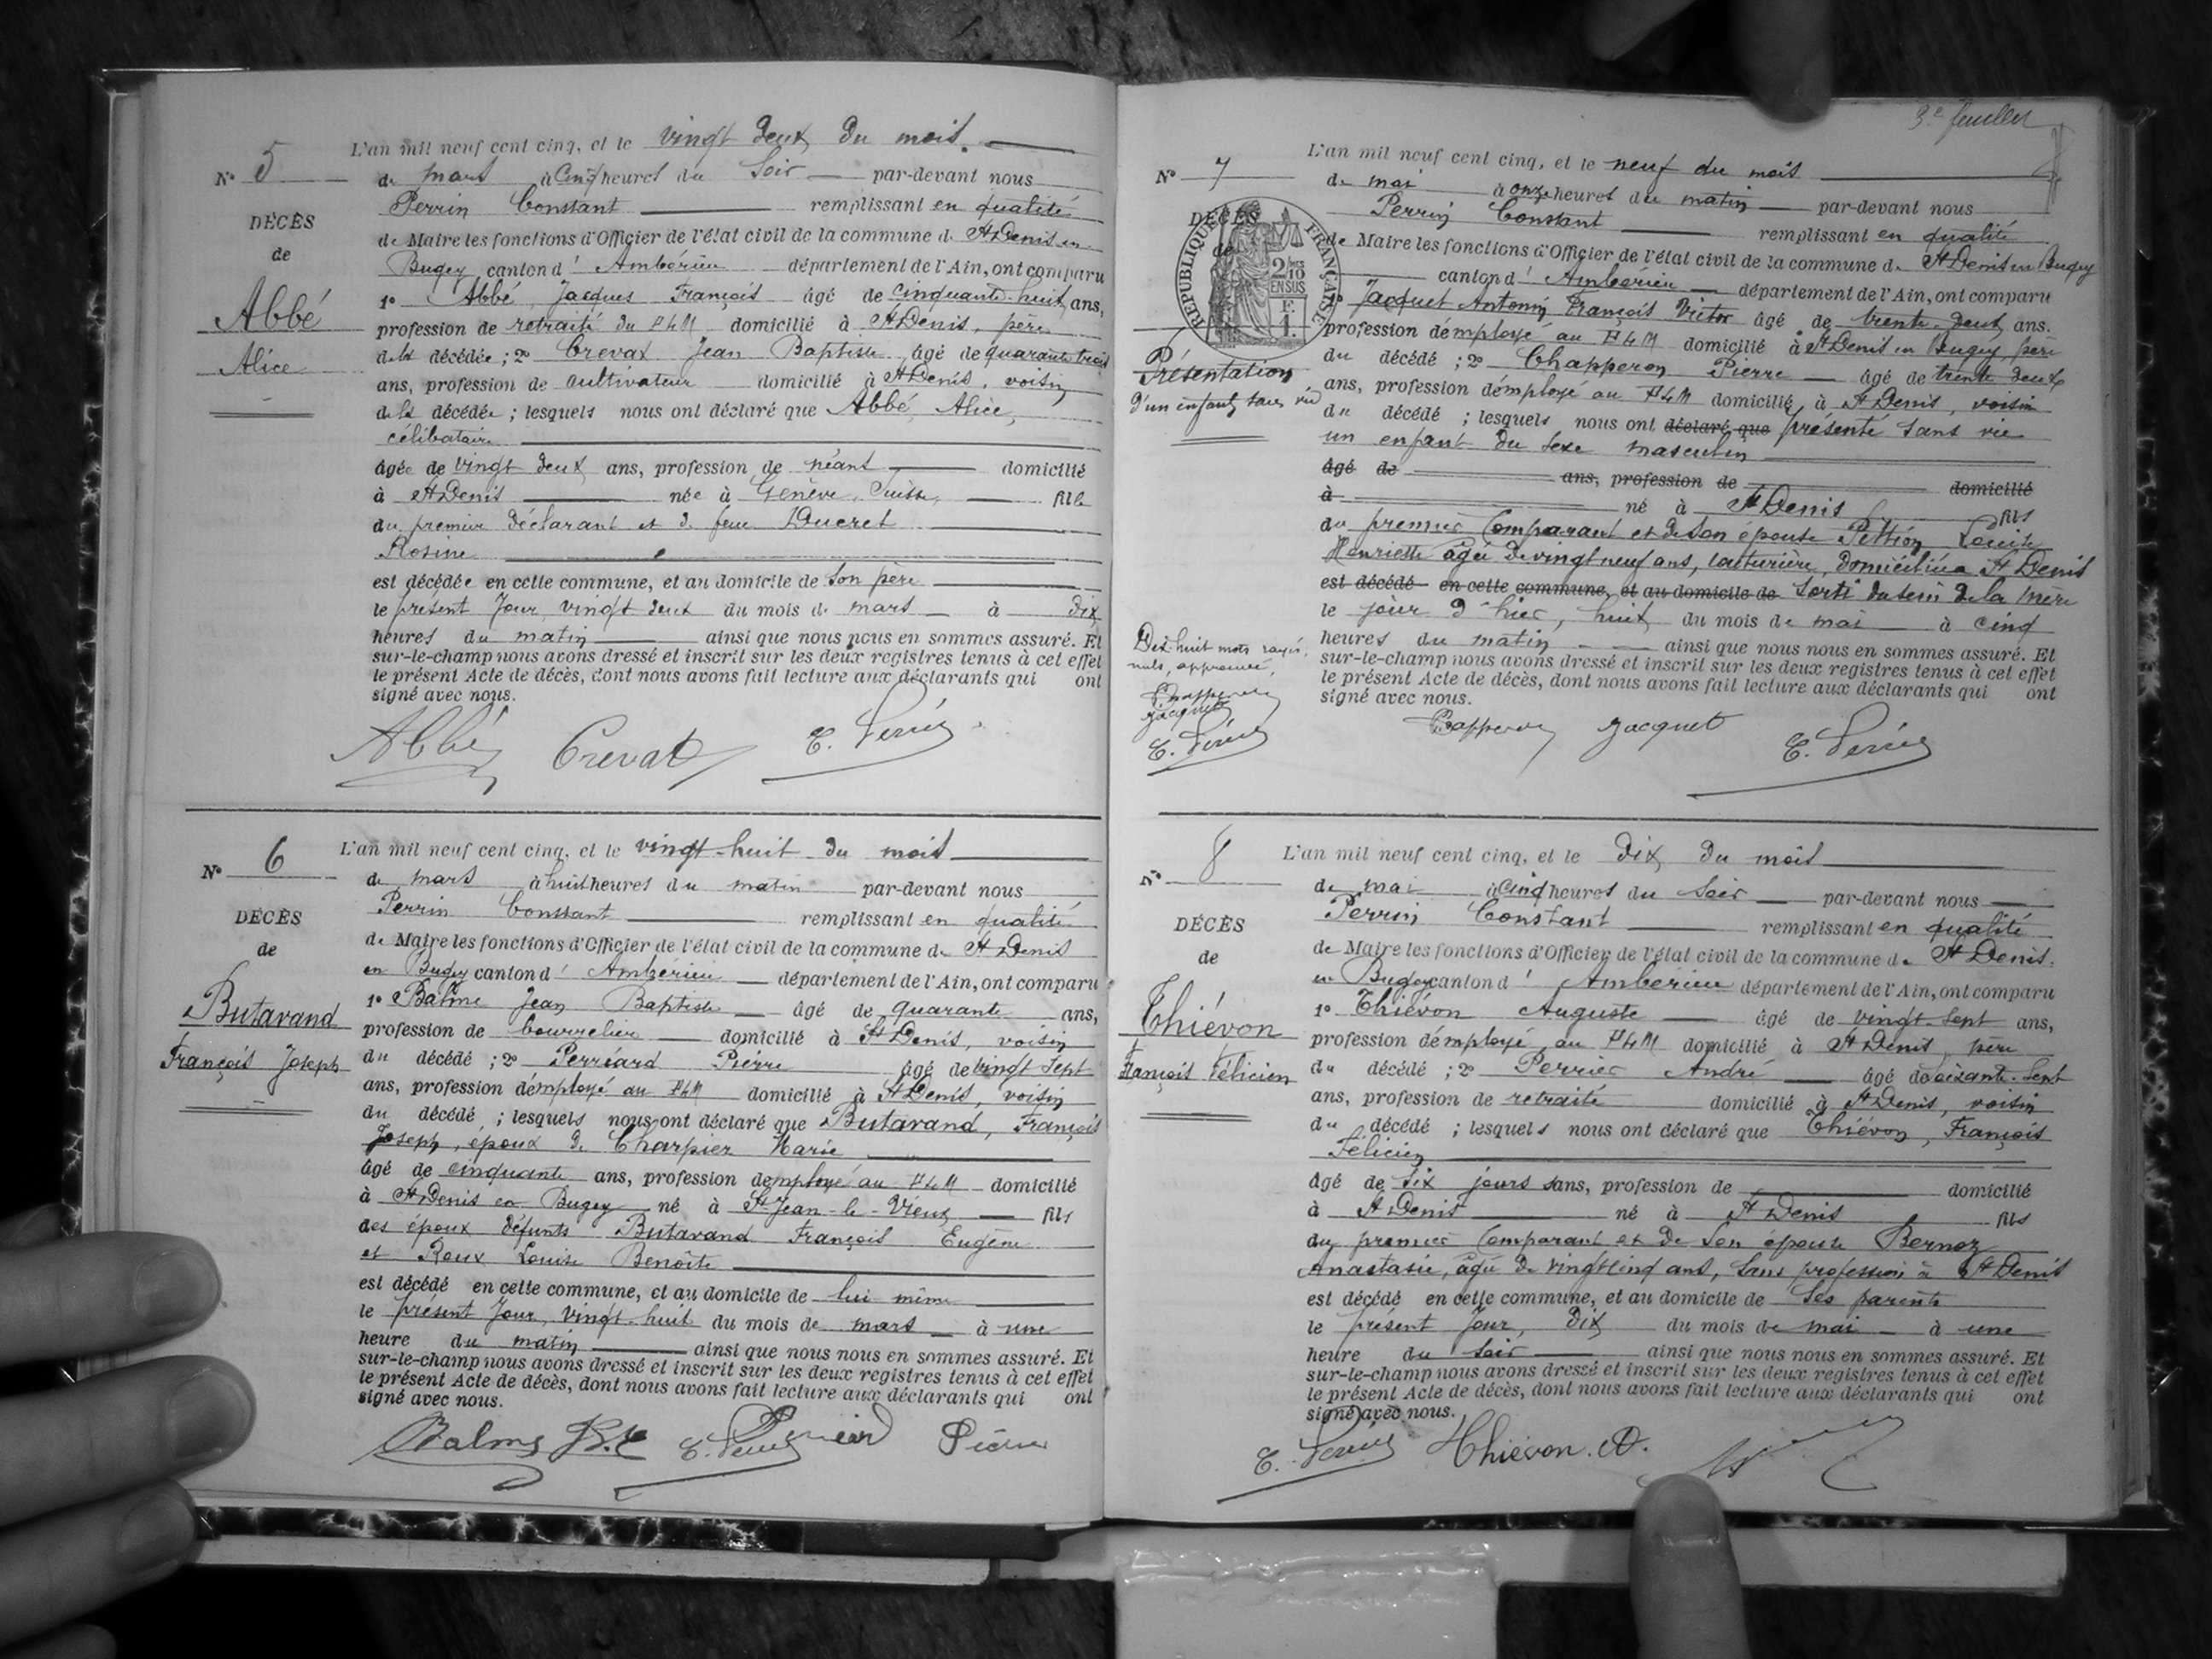 L'an mil neuf cent cinq, et le vingt deux du mois.
N° 5
de mars à cinq heures du soir par-devant nous
Perrin Constant remplissant en qualité
DÉCÈS
de Maire les fonctions d'Officier de l'état civil de la commune de St Denis en
de
Bugey canton d' Ambérieu département de l'Ain, ont comparu
Abbé
1° Abbé, Jacques François âgé de cinquante-huit ans,
profession de retraité du PLM domicilié à St Denis, père
Alice
de la décédée ; 2° Crevat Jean Baptiste âgé de quarante trois
ans, profession de cultivateur domicilié à St Denis, voisin
de la décédée ; lesquels nous ont déclaré que Abbé, Alice,
célibataire
âgée de vingt deux ans, profession de néant domicilié
à St Denis née à Genève, Suisse, fille
du premier déclarant et de feue Ducret
Rosine
est décédée en cette commune, et au domicile de son père
le présent jour, vingt deux du mois de mars à dix
heures du matin ainsi que nous nous en sommes assuré. Et
sur-le-champ nous avons dressé et inscrit sur les deux registres tenus à cet effet
le présent Acte de décès, dont nous avons fait lecture aux déclarants qui ont
signé avec nous.
Abbé Crevat C. Perrin
L'an mil neuf cent cinq, et le vingt-huit du mois
N° 6
de mars à huit heures du matin par-devant nous
Perrin Constant remplissant en qualité
DÉCÈS
de Maire les fonctions d'Officier de l'état civil de la commune de St Denis
de
en Bugey canton d' Ambérieu département de l'Ain, ont comparu
Butavand
1° Balme Jean Baptiste âgé de quarante ans,
profession de bourrelier domicilié à St Denis, voisin
François Joseph
du décédé ; 2° Perréard Pierre âgé de vingt sept
ans, profession d'employé au PLM domicilié à St Denis, voisin
du décédé ; lesquels nous ont déclaré que Butavand, François
Joseph, époux de Charpier Marie
âgé de cinquante ans, profession d'employé au PLM domicilié
à St Denis en Bugey né à St Jean-le-Vieux fils
des époux défunts Butavand François Eugène
et Roux Louise Benoîte
est décédé en cette commune, et au domicile de lui même
le présent jour, vingt-huit du mois de mars à une
heure du matin ainsi que nous nous en sommes assuré. Et
sur-le-champ nous avons dressé et inscrit sur les deux registres tenus à cet effet
le présent Acte de décès, dont nous avons fait lecture aux déclarants qui ont
signé avec nous.
Balme C. Perrin Perréard Pierre
3e feuillet
L'an mil neuf cent cinq, et le neuf du mois
N° 7
de mai à onze heures du matin par-devant nous
Perrin Constant remplissant en qualité
DÉCÈS
de
RÉPUBLIQUE FRANÇAISE
2/10 EN SUS
de Maire les fonctions d'Officier de l'état civil de la commune de St Denis en Bugey
canton d' Ambérieu département de l'Ain, ont comparu
1° Jacquet Antonin François Victor âgé de trente-deux ans.
profession d'employé au PLM domicilié à St Denis en Bugey, père
Présentation
du décédé ; 2° Chapperon Pierre âgé de trente deux
d'un enfant sans vie
ans, profession d'employé au PLM domicilié à St Denis, voisin
du décédé ; lesquels nous ont déclaré que présenté sans vie
un enfant du sexe masculin
âgé de ans, profession de domicilié
à né à St Denis fils
du premier Comparant et de son épouse Pettion Louise
Henriette âgée de vingt neuf ans, couturière, domiciliée à St Denis
est décédé en cette commune, et au domicile de sorti du sein de la mère
le jour d'hier, huit du mois de mai à cinq
heures du matin ainsi que nous nous en sommes assuré. Et
Dix huit mots rayés
nuls, approuvé
sur-le-champ nous avons dressé et inscrit sur les deux registres tenus à cet effet
le présent Acte de décès, dont nous avons fait lecture aux déclarants qui ont
signé avec nous.
Chapperon
Jacquet
C. Perrin
Chapperon Jacquet C. Perrin
L'an mil neuf cent cinq, et le dix du mois
N° 8
de mai à cinq heures du soir par-devant nous
Perrin Constant remplissant en qualité
DÉCÈS
de Maire les fonctions d'Officier de l'état civil de la commune de St Denis.
de
en Bugey canton d' Ambérieu département de l'Ain, ont comparu
Thiévon
1° Thiévon Auguste âgé de vingt-sept ans,
profession d'employé au PLM domicilié à St Denis, père
François Félicien
du décédé ; 2° Perrier André âgé de soixante-sept
ans, profession de retraité domicilié à St Denis, voisin
du décédé ; lesquels nous ont déclaré que Thiévon, François
Félicien
âgé de six jours sans, profession de domicilié
à St Denis né à St Denis fils
du premier Comparant et de son épouse Bernoz
Anastasie, âgée de vingt cinq ans, sans profession à St Denis
est décédé en cette commune, et au domicile de ses parents
le présent jour, dix du mois de mai à une
heure du soir ainsi que nous nous en sommes assuré. Et
sur-le-champ nous avons dressé et inscrit sur les deux registres tenus à cet effet
le présent Acte de décès, dont nous avons fait lecture aux déclarants qui ont
signé avec nous.
C. Perrin Thiévon. A.